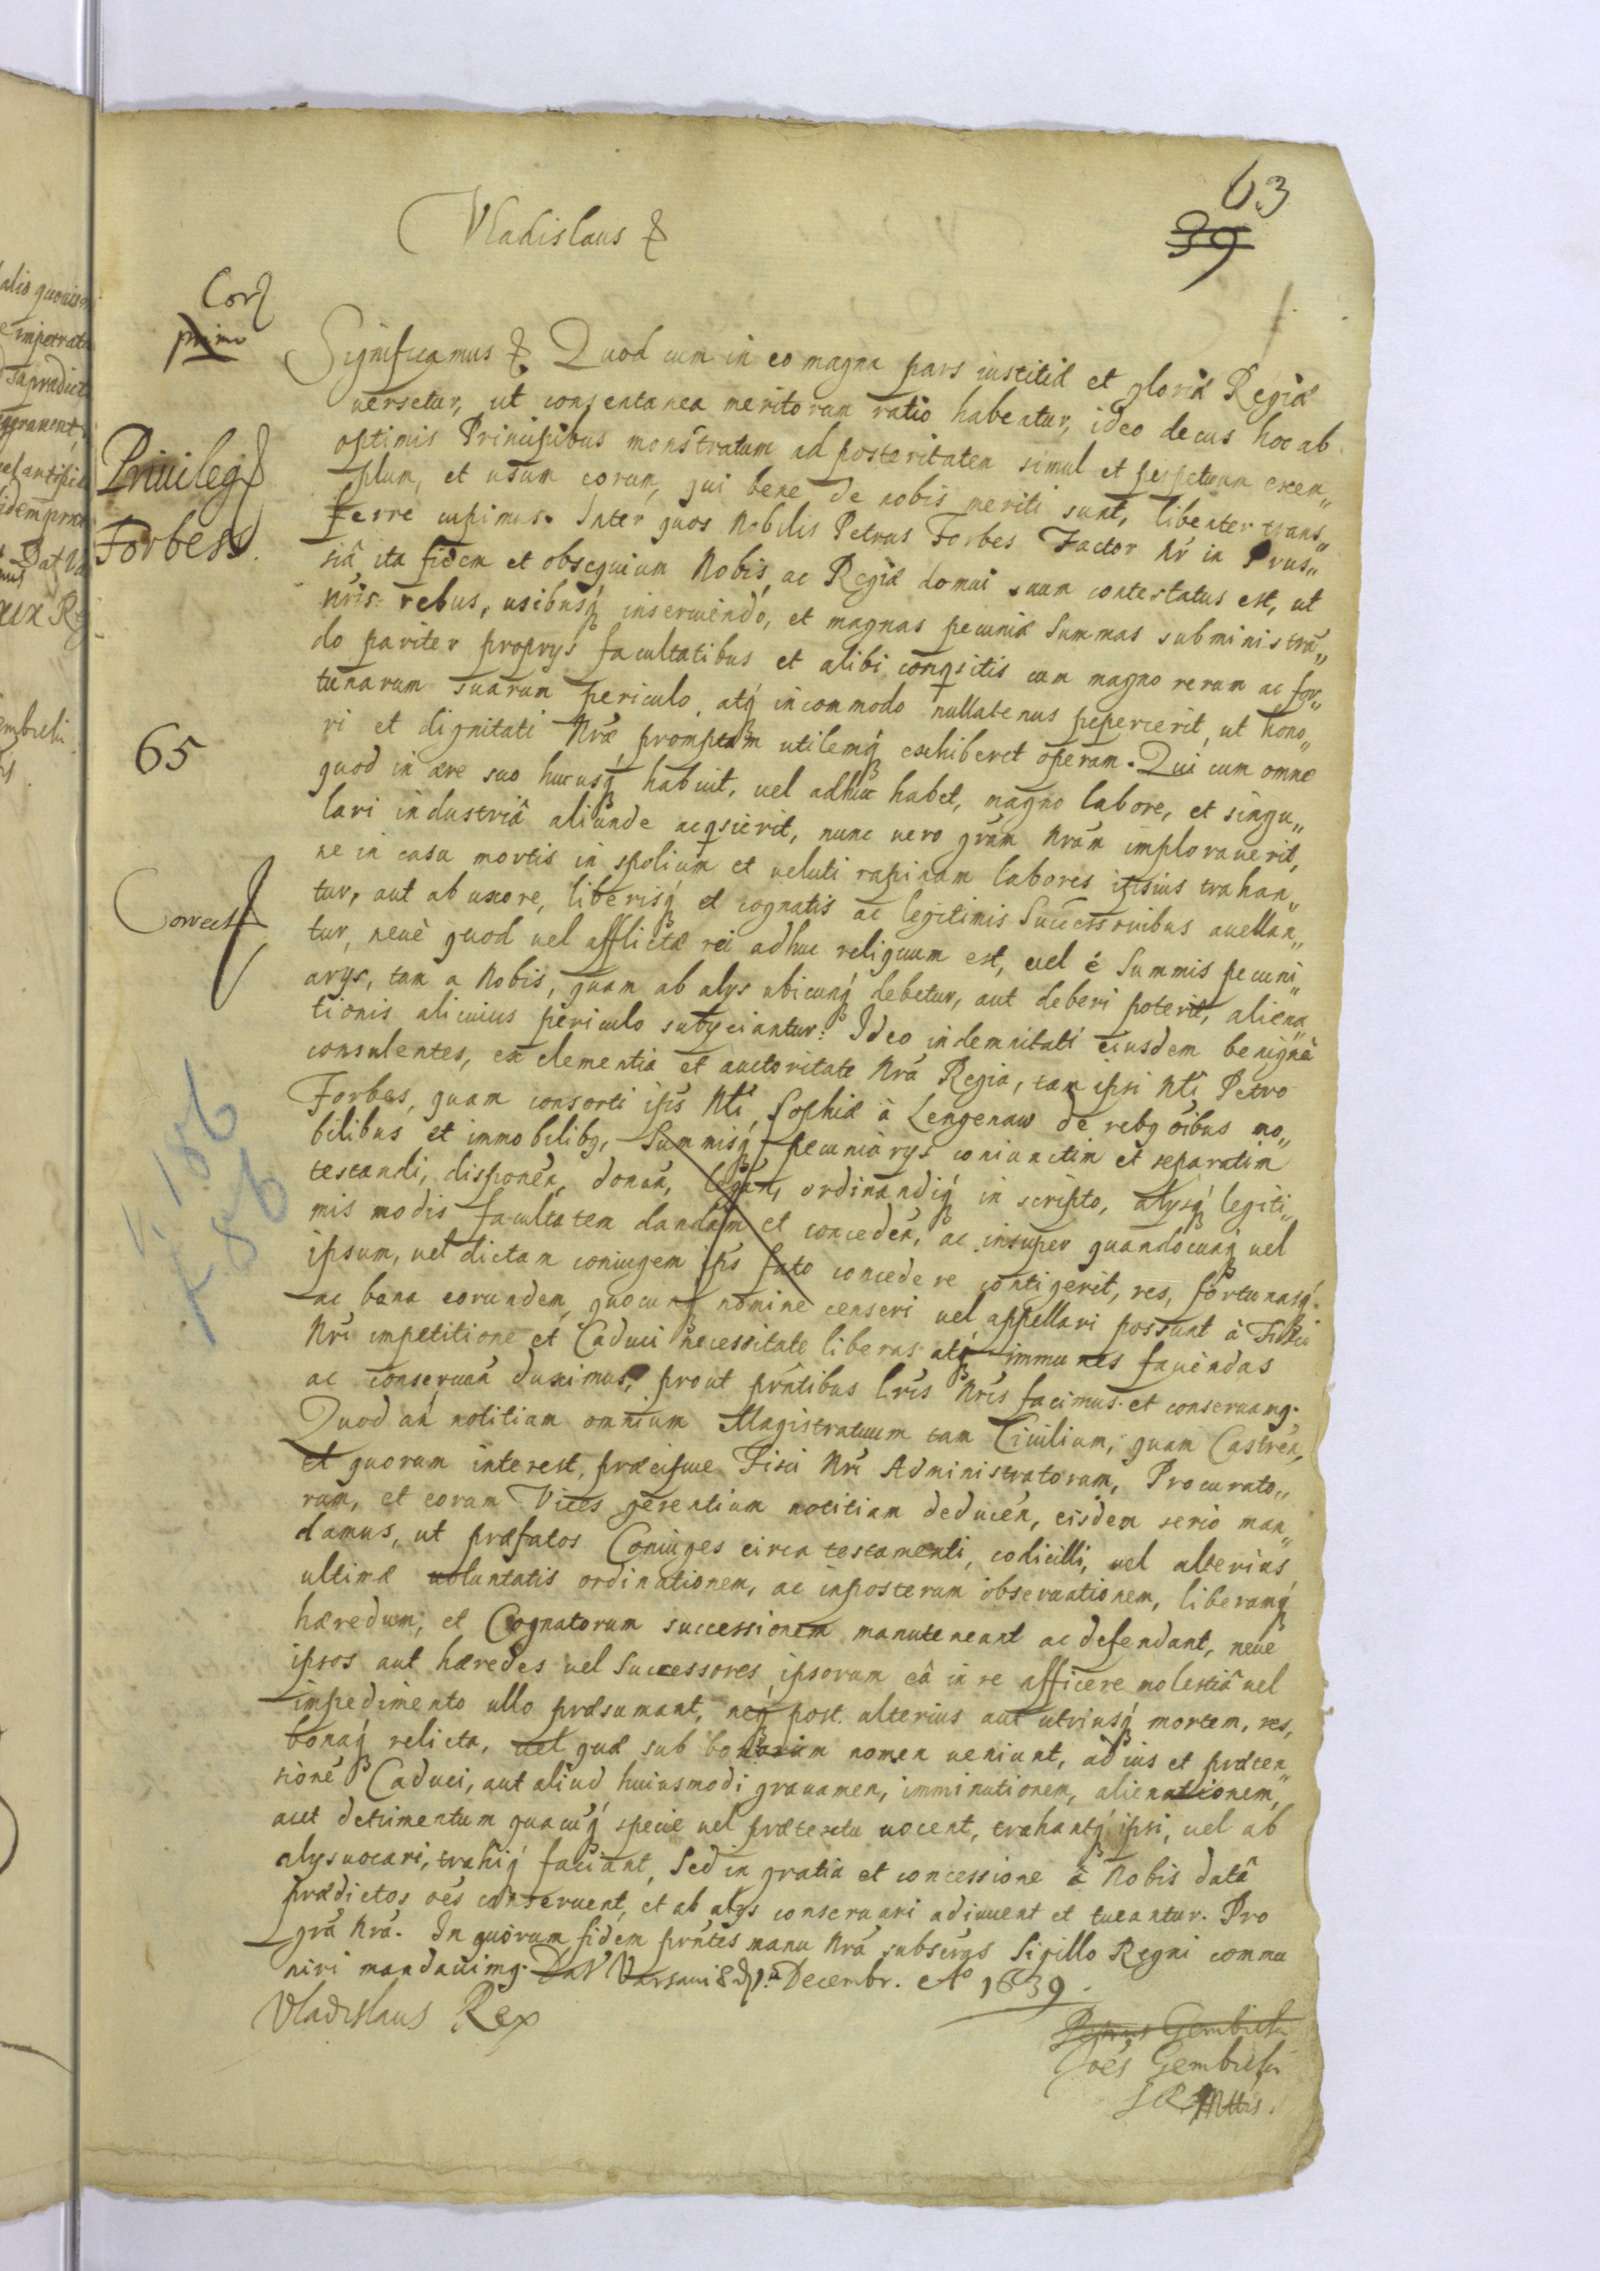 63
39
Vladislaus &
Cor
primo
Significamus & Quod cum in eo magna pars iustitiæ et gloriæ Regiæ
versetur, ut consentanea meritorum ratio habeatur, ideo decus hoc ab
optimis Principibus monstratum ad posteritatem simul et perpetuum exem„
plum, et usum eorum, qui bene de nobis meriti sunt, libenter trans„
ferre cupimus. Inter quos Nobilis Petrus Forbes Factor Nr in Prus„
siâ ita fidem et obsequium Nobis, ac Regiæ domui suum contestatus est, ut
Nris rebus, usibusq inserviendo, et magnas pecuniæ Summas subministra„
do pariter proprys facultatibus et alibi conqsitis cum magno rerum ac for„
tunarum suarum periculo, atq incommodo nullatenus pepercerit, ut hono„
ri et dignitati Nræ promptam utilemq exhiberet operam. Qui cum omne
quod in ære suo hucusq habuit, vel adhuc habet, magno labore, et singu„
lari industriâ aliunde acqsierit, nunc vero grãm Nrãm imploraverit,
ne in casu mortis in spolium et veluti rapinam labores ipsius trahan„
tur, aut ab uxore, liberisq et cognatis ac legitimis Successoribus avellan„
tur, nevè quod vel afflictæ rei adhuc reliquum est, vel è Summis pecuni„
arys, tam a Nobis, quam ab alys ubicunq debetur, aut deberi poterit, aliena„
tionis alicuius periculo subyciantur: Ideo indemnitati eiusdem benignè
consulentes, ex clementia et auctoritate Nrâ Regia, tam ipsi Nli Petro
Forbes, quam consorti ipś Nli Sophiæ à Lengenaw de rebq oibus mo„
bilibus et immobilibq, Summisq pecuniarys coniunctim et separatim
testandi, disponeñ, donañ, legañ, ordinandiq in scripto, alysq legiti„
mis modis facultatem dandam et concedeñ, ac insuper quandocunq vel
ipsum, vel dictam coniugem ipś fato concedere contigerit, res, fortunasq
ac bona eorundem, quocunq nomine censeri vel appellari possunt à Fisci
Nri impetitione et Caduci necessitate liberas atq immunes favendas
ac conservañ duximus, prout prñtibus lris Nris facimus et conservamq.
Quod ad notitiam omnium Magistratuum tam Civilium, quam Castreñ,
et quorum interest, præcipue Fisci Nri Administratorum, Procurato„
rum, et eorum Vices gerentium notitiam deduceñ, eisdem seriò man„
damus, ut præfatos Coniuges circa testamenti, codicilli, vel alterius
ultimæ voluntatis ordinationem, ac inposterum observationem, liberamq
hæredum, et Cognatorum successionem manuteneant ac defendant, neve
ipsos aut hæredes vel Successores ipsorum eâ in re afficere molestiâ vel
impedimento ullo præsumant, neq post alterius aut utriusq mortem, res,
bonaq relicta, vel quæ sub bonorum nomen veniunt, ad ius et præten„
sionẽ Caduci, aut aliud huiusmodi gravamen, imminutionem, alienationem,
aut detrimentum quacũq specie vel prætextu vocent, trahantq ipsi, vel ab
alys vocari, trahiq faciant, Sed in gratia et concessione à Nobis datâ
prædictos oẽs conservent, et ab alys conservari adiuvent et tueantur. Pro
grã Nrã. In quorum fidem prñtes manu Nrã subscrys Sigillo Regni commu
niri mandavimq. Dat Varsaviæ d 1.a Decembr. Ao 1639.
Vladislaus Rex
Petrus Gembicki
Joes Gembicki
S R Mttis.
Privileg
Forbes.
65
Correct
V. 186
K 86